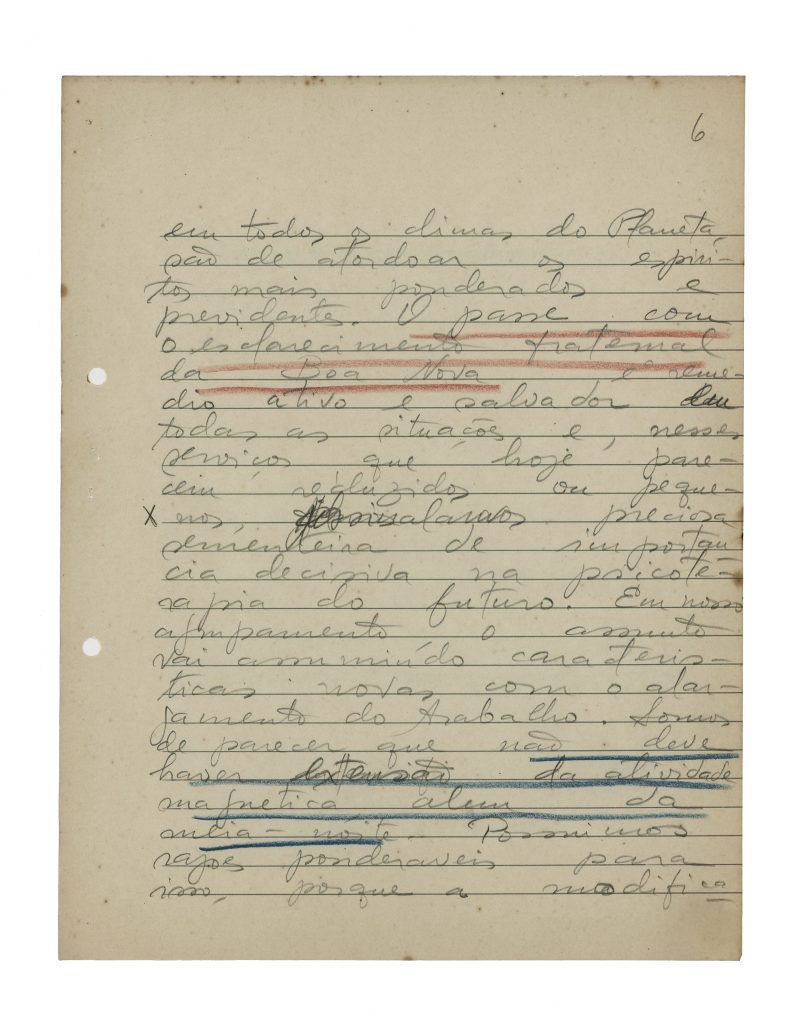 6
em todos os climas do Planeta,
são de atordoar os espiri-
tos mais ponderados e
previdentes. O passe com
o esclarecimento fraternal
da Boa Nova é reme-
dio ativo e salvador em
todas as situações e, nesses
serviços que hoje pare-
cem reduzidos ou peque-
X nos, preciosa
sementeira de importan
cia decisiva na psicote-
rapia do futuro. Em nosso
agrupamento o assunto
vai assumindo caracteris-
ticas novas com o alar-
gamento do trabalho. Somos
de parecer que não deve
haver extensão da atividade
magnetica alem da
meia-noite. Possuimos
razões ponderaveis para
isso, porque a modifica